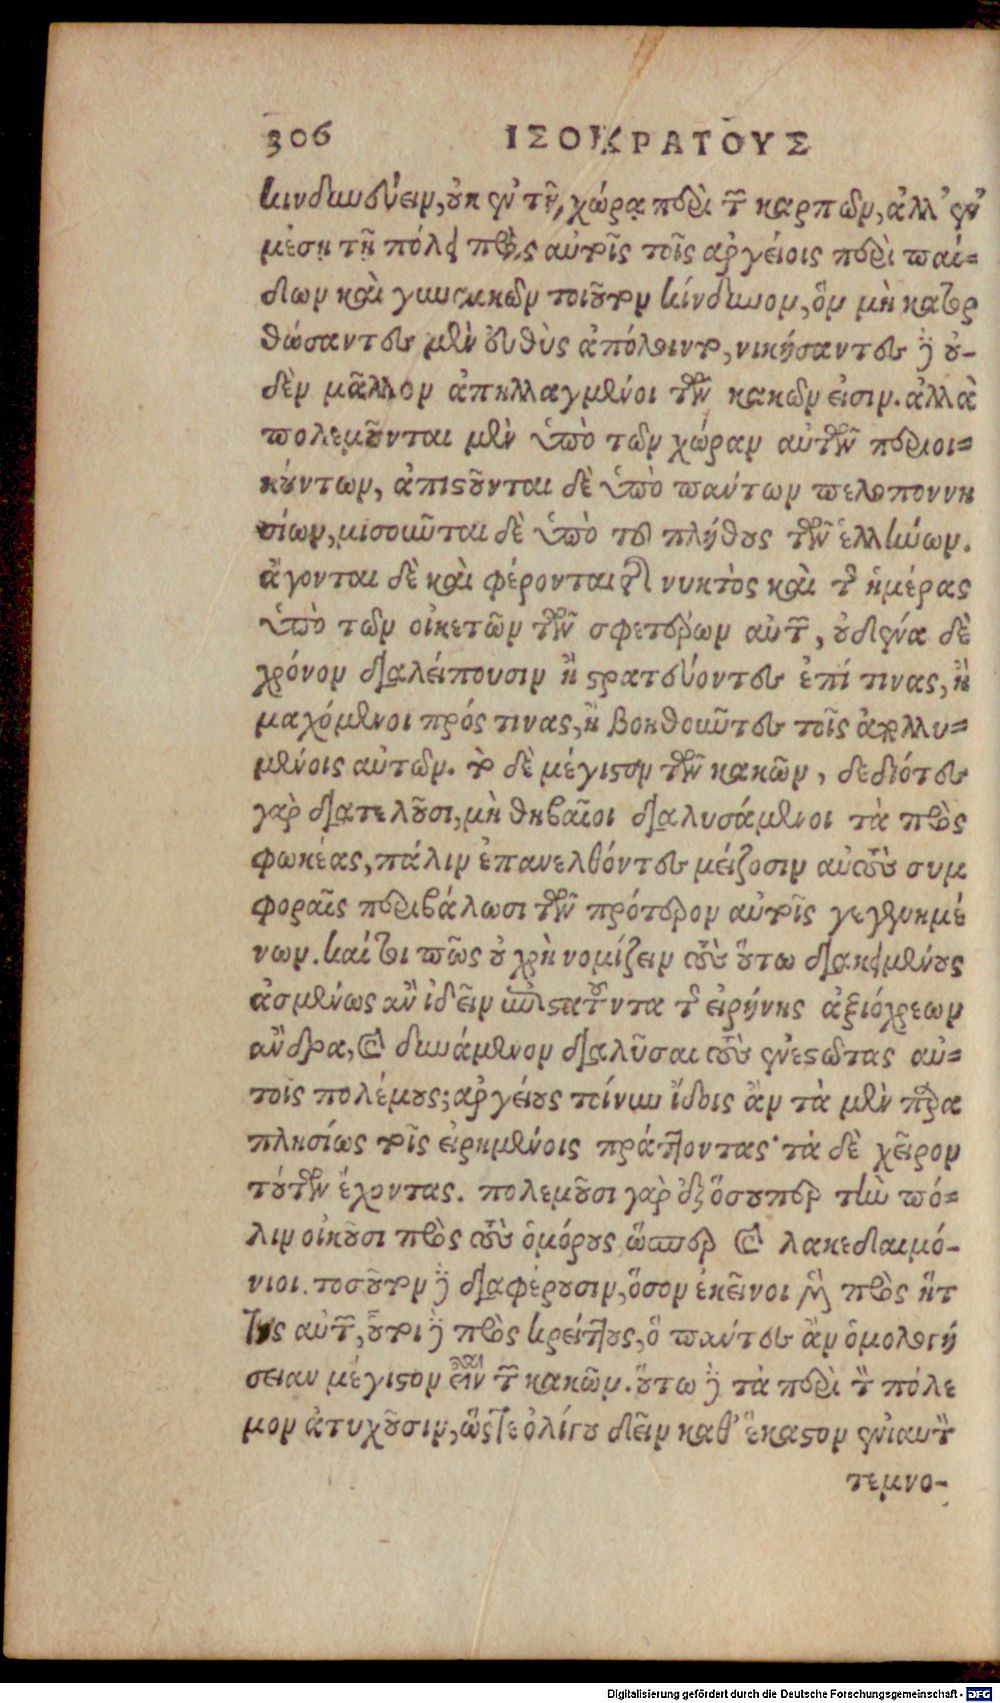 306 ΙΣΟΚΡΑΤΟΥΣ
κινδυνεύειν, οὐκ ἐν τῇ χώρᾳ περὶ τῶν καρπῶν, ἀλλ' ἐν
μέσῃ τῇ πόλει πρὸς αὐτοῖς τοῖς ἀργείοις περὶ παί=
δων καὶ γυναικῶν τοιοῦτον κίνδυνον, ὃν μὴ κατορ
θώσαντες μὲν εὐθὺς ἀπόλοιντο, νικήσαντες δὲ οὐ-
δὲν μᾶλλον ἀπηλλαγμένοι τῶν κακῶν εἰσιν. ἀλλὰ
πολεμοῦνται μὲν ὑπὸ τῶν χώραν αὐτῶν περιοι=
κούντων, ἀπιστοῦνται δὲ ὑπὸ πάντων πελοποννη
σίων, μισοῦνται δὲ ὑπὸ τοῦ πλήθους τῶν ἑλλήνων.
ἄγονται δὲ καὶ φέρονται καὶ νυκτὸς καὶ τῆς ἡμέρας
ὑπὸ τῶν οἰκετῶν τῶν σφετέρων αὐτῶν, οὐδένα δὲ
χρόνον διαλείπουσιν ἢ στρατεύοντες ἐπί τινας, ἢ
μαχόμενοι πρός τινας, ἢ βοηθοῦντες τοῖς ἀπολλυ=
μένοις αὐτῶν. τὸ δὲ μέγιστον τῶν κακῶν, δεδιότες
γὰρ διατελοῦσι, μὴ θηβαῖοι διαλυσάμενοι τὰ πρὸς
φωκέας, πάλιν ἐπανελθόντες μείζοσιν αὐτοὺς συμ
φοραῖς περιβάλωσι τῶν πρότερον αὐτοῖς γεγενημέ
νων. καί τοι πῶς οὐ χρὴ νομίζειν τοὺς οὕτω διακειμένους
ἀσμένως ἂν ἰδεῖν ἐπιστατοῦντα τῆς εἰρήνης ἀξιόχρεων
ἄνδρα, καὶ δυνάμενον διαλῦσαι τοὺς ἐνεστῶτας αὐ=
τοῖς πολέμους; ἀργείους τοίνυν ἴδοις ἂν τὰ μὲν παρα
πλησίως τοῖς εἰρημένοις πράττοντας· τὰ δὲ χεῖρον
τούτων ἔχοντας. πολεμοῦσι γὰρ ἐξ ὅσουπερ τὴν πό=
λιν οἰκοῦσι πρὸς τοὺς ὁμόρους, ὥσπερ καὶ λακεδαιμό-
νιοι. τοσοῦτον δὲ διαφέρουσιν, ὅσον ἐκεῖνοι μὲν πρὸς ἥτ
τους αὐτῶν, οὗτοι δὲ πρὸς κρείττους, ὃ πάντες ἂν ὁμολογή
σειαν μέγιστον εἶναι τῶν κακῶν. οὕτω δὲ τὰ περὶ τὸν πόλε
μον ἀτυχοῦσιν, ὥστε ὀλίγου δεῖν καθ' ἕκαστον ἐνιαυτὸν
τεμνο-
Digitalisierung gefördert durch die Deutsche Forschungsgemeinschaft - DFG